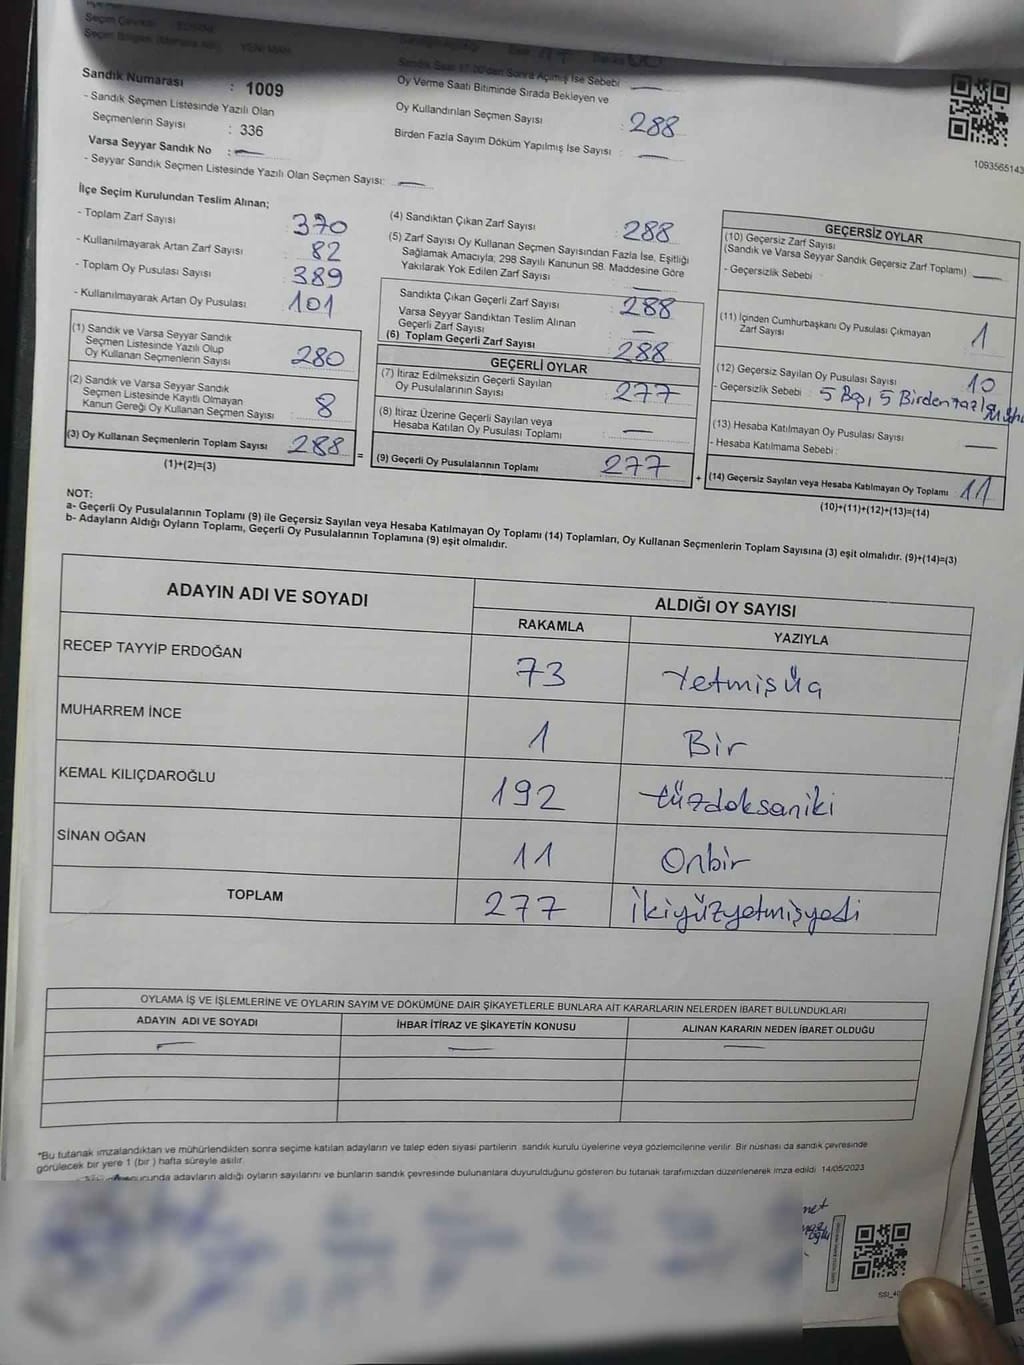 Seçim Çevresi
Seçim Bölgesi (Muhtarlık Adı) YENİ MAH.
Sandık Numarası : 1009
- Sandık Seçmen Listesinde Yazılı Olan
Seçmenlerin Sayısı : 336
Varsa Seyyar Sandık No : —
- Seyyar Sandık Seçmen Listesinde Yazılı Olan Seçmen Sayısı: —
Sandık Saat 17.00'dan Sonra Açılmış İse Sebebi —
Oy Verme Saati Bitiminde Sırada Bekleyen ve
Oy Kullandırılan Seçmen Sayısı : 288
Birden Fazla Sayım Döküm Yapılmış İse Sayısı : —
1093565143
İlçe Seçim Kurulundan Teslim Alınan;
- Toplam Zarf Sayısı 370
- Kullanılmayarak Artan Zarf Sayısı 82
- Toplam Oy Pusulası Sayısı 389
- Kullanılmayarak Artan Oy Pusulası 101
(1) Sandık ve Varsa Seyyar Sandık
Seçmen Listesinde Yazılı Olup
Oy Kullanan Seçmenlerin Sayısı 280
(2) Sandık ve Varsa Seyyar Sandık
Seçmen Listesinde Kayıtlı Olmayan
Kanun Gereği Oy Kullanan Seçmen Sayısı 8
(3) Oy Kullanan Seçmenlerin Toplam Sayısı 288 =
(1)+(2)=(3)
(4) Sandıktan Çıkan Zarf Sayısı 288
(5) Zarf Sayısı Oy Kullanan Seçmen Sayısından Fazla İse, Eşitliği
Sağlamak Amacıyla; 298 Sayılı Kanunun 98. Maddesine Göre
Yakılarak Yok Edilen Zarf Sayısı —
Sandıkta Çıkan Geçerli Zarf Sayısı 288
Varsa Seyyar Sandıktan Teslim Alınan
Geçerli Zarf Sayısı —
(6) Toplam Geçerli Zarf Sayısı 288
GEÇERLİ OYLAR
(7) İtiraz Edilmeksizin Geçerli Sayılan
Oy Pusulalarının Sayısı 277
(8) İtiraz Üzerine Geçerli Sayılan veya
Hesaba Katılan Oy Pusulası Toplamı —
(9) Geçerli Oy Pusulalarının Toplamı 277 +
GEÇERSİZ OYLAR
(10) Geçersiz Zarf Sayısı
(Sandık ve Varsa Seyyar Sandık Geçersiz Zarf Toplamı) —
- Geçersizlik Sebebi :
(11) İçinden Cumhurbaşkanı Oy Pusulası Çıkmayan
Zarf Sayısı 1
(12) Geçersiz Sayılan Oy Pusulası Sayısı 10
- Geçersizlik Sebebi : 5 Boş, 5 Birden fazla
(13) Hesaba Katılmayan Oy Pusulası Sayısı —
- Hesaba Katılmama Sebebi :
(14) Geçersiz Sayılan veya Hesaba Katılmayan Oy Toplamı 11
(10)+(11)+(12)+(13)=(14)
NOT:
a- Geçerli Oy Pusulalarının Toplamı (9) ile Geçersiz Sayılan veya Hesaba Katılmayan Oy Toplamı (14) Toplamları, Oy Kullanan Seçmenlerin Toplam Sayısına (3) eşit olmalıdır. (9)+(14)=(3)
b- Adayların Aldığı Oyların Toplamı, Geçerli Oy Pusulalarının Toplamına (9) eşit olmalıdır.
ADAYIN ADI VE SOYADI ALDIĞI OY SAYISI
RAKAMLA YAZIYLA
RECEP TAYYİP ERDOĞAN 73 Yetmişüç
MUHARREM İNCE 1 Bir
KEMAL KILIÇDAROĞLU 192 Yüzdoksaniki
SİNAN OĞAN 11 Onbir
TOPLAM 277 İkiyüzyetmişyedi
OYLAMA İŞ VE İŞLEMLERİNE VE OYLARIN SAYIM VE DÖKÜMÜNE DAİR ŞİKAYETLERLE BUNLARA AİT KARARLARIN NELERDEN İBARET BULUNDUKLARI
ADAYIN ADI VE SOYADI İHBAR İTİRAZ VE ŞİKAYETİN KONUSU ALINAN KARARIN NEDEN İBARET OLDUĞU
— — —
*Bu tutanak imzalandıktan ve mühürlendikten sonra seçime katılan adayların ve talep eden siyasi partilerin sandık kurulu üyelerine veya gözlemcilerine verilir. Bir nüshası da sandık çevresinde
görülecek bir yere 1 (bir) hafta süreyle asılır.
sonucunda adayların aldığı oyların sayılarını ve bunların sandık çevresinde bulunanlara duyurulduğunu gösteren bu tutanak tarafımızdan düzenlenerek imza edildi 14/05/2023